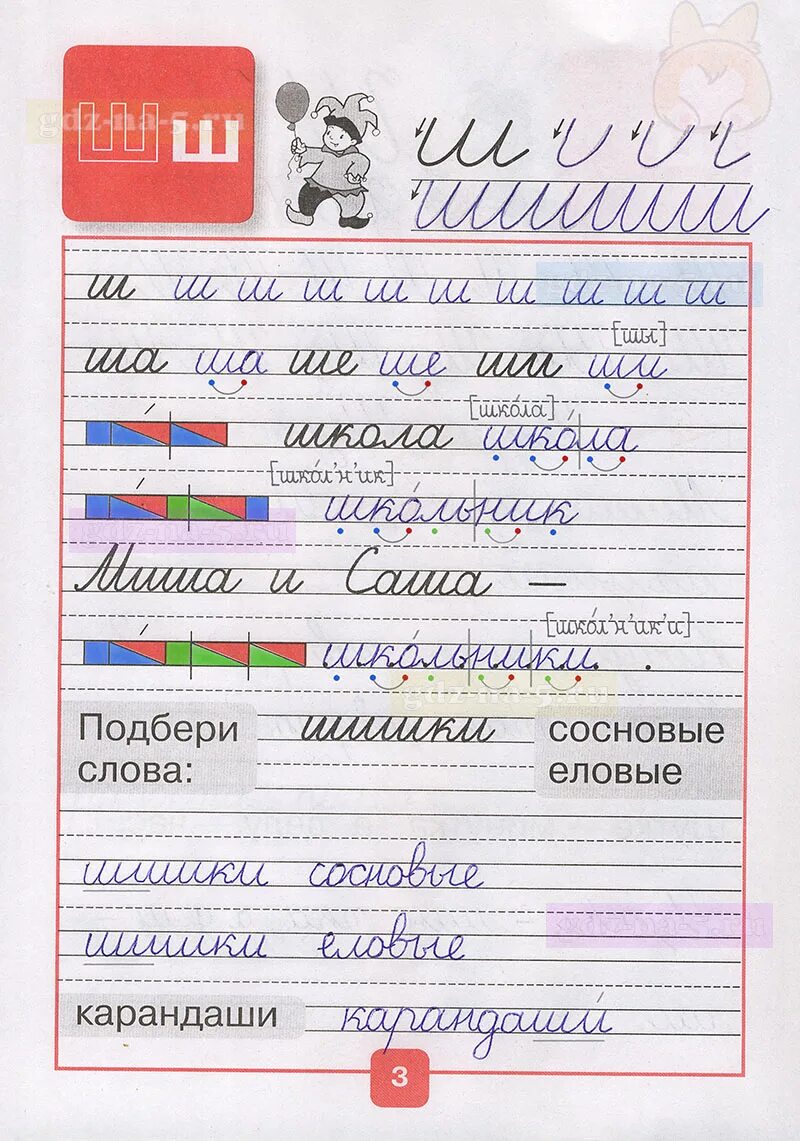 Ш ш
gdz-na-5.ru
ш
ш ш ш ш ш ш
ш ш ш ш ш ш ш ш ш ш
[шы]
ша ша ше ше ши ши
[шко́ла]
школа шко́ла
[шко́л'н'ик]
шко́льник
Миша и Саша —
[шко́л'н'ик'и]
шко́льники.
gdz-na-5.ru
Подбери слова:
шишки
сосновые
еловые
шишки сосновые
шишки еловые
карандаши карандаши́
3